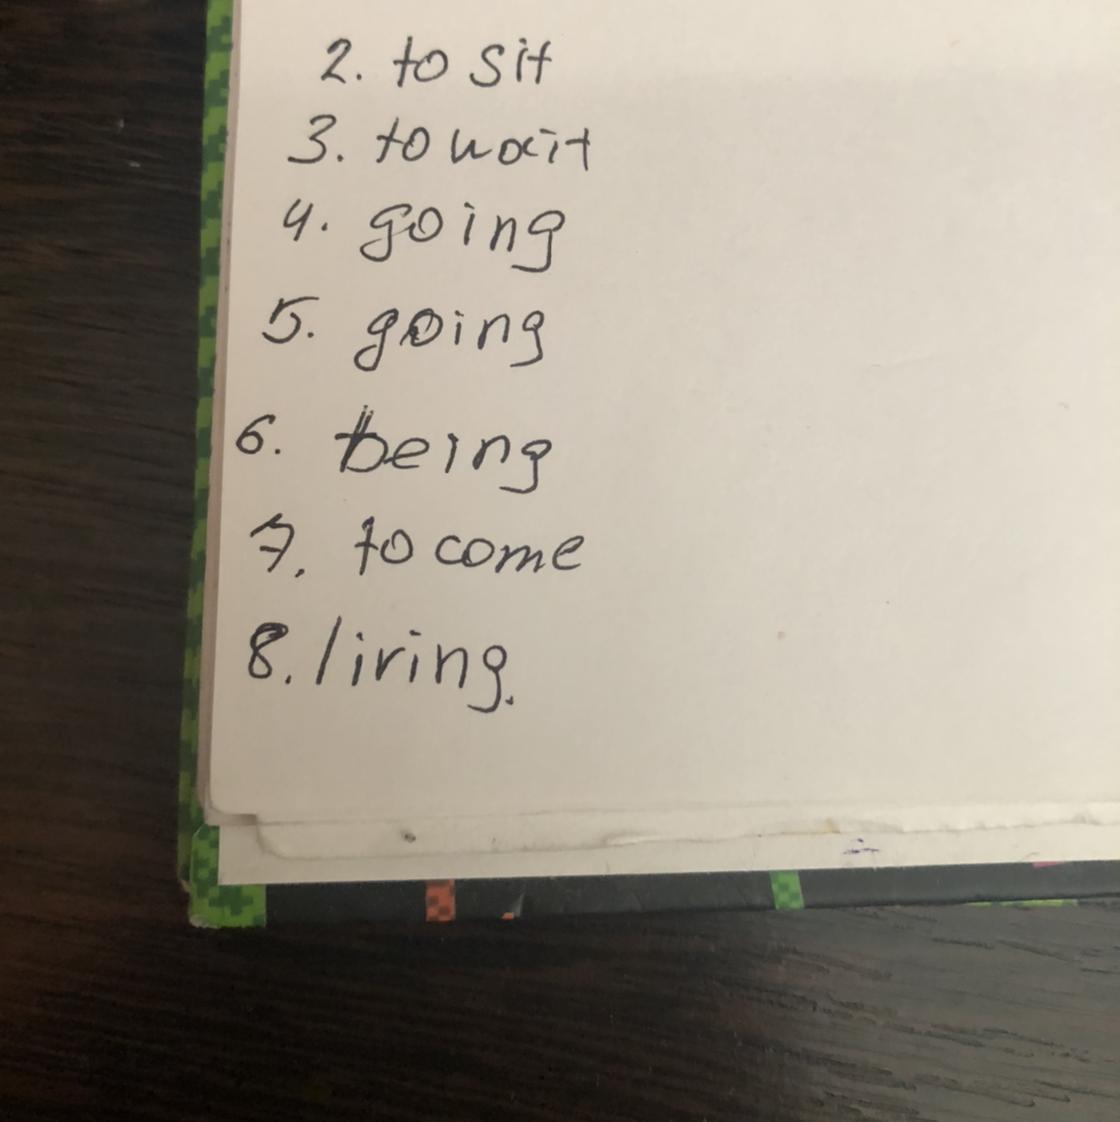 2. to sit
3. to wait
4. going
5. going
6. being
7. to come
8. living.